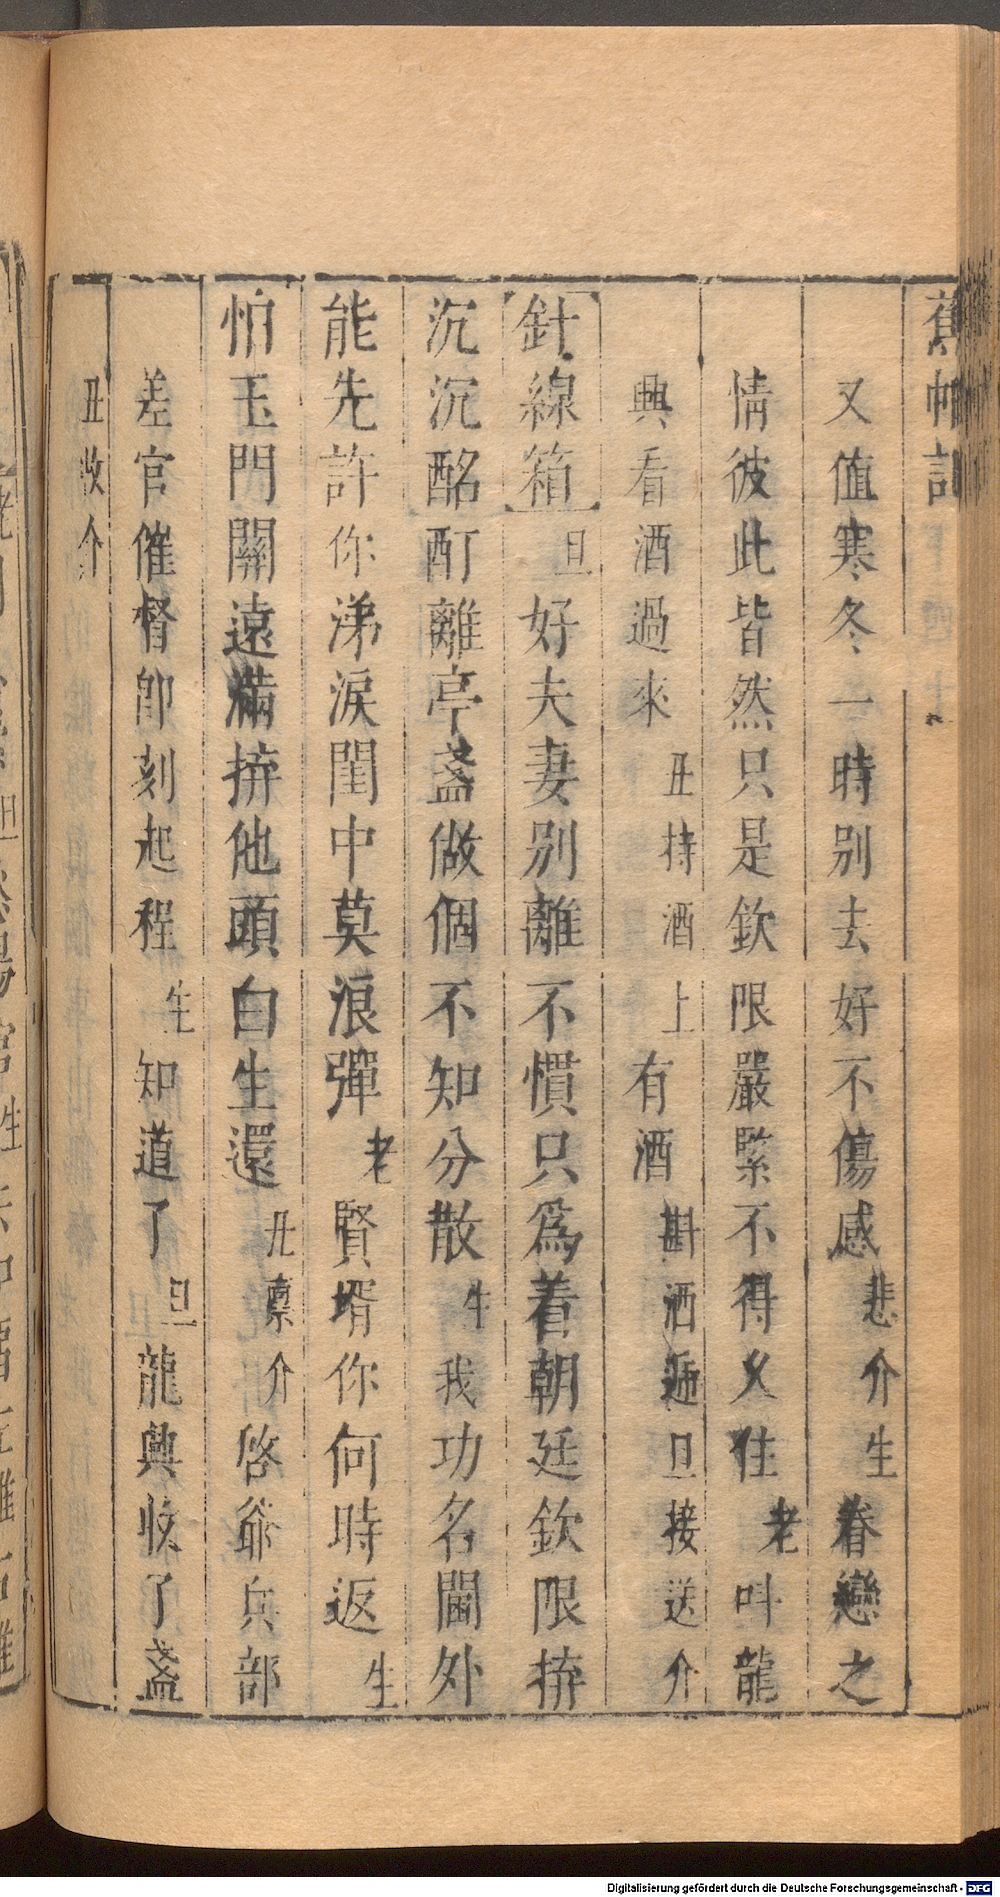 舊帕記
又值寒冬一時別去好不傷感悲介生眷戀之
情彼此皆然只是欽限嚴緊不得久住老叫龍
興看酒過來丑持酒上有酒斟洒遞旦接送介
針線箱旦好夫妻別離不慣只為着朝廷欽限拚
沉沉酩酊離亭盞做個不知分散生我功名閫外
能先許你涕淚閨中莫浪彈老賢壻你何時返生
怕玉門關遠滿拚他頭白生還丑禀介啓爺兵部
差官催督卽刻起程生知道了旦龍興收了盞
丑收介
Digitalisierung gefördert durch die Deutsche Forschungsgemeinschaft - DFG